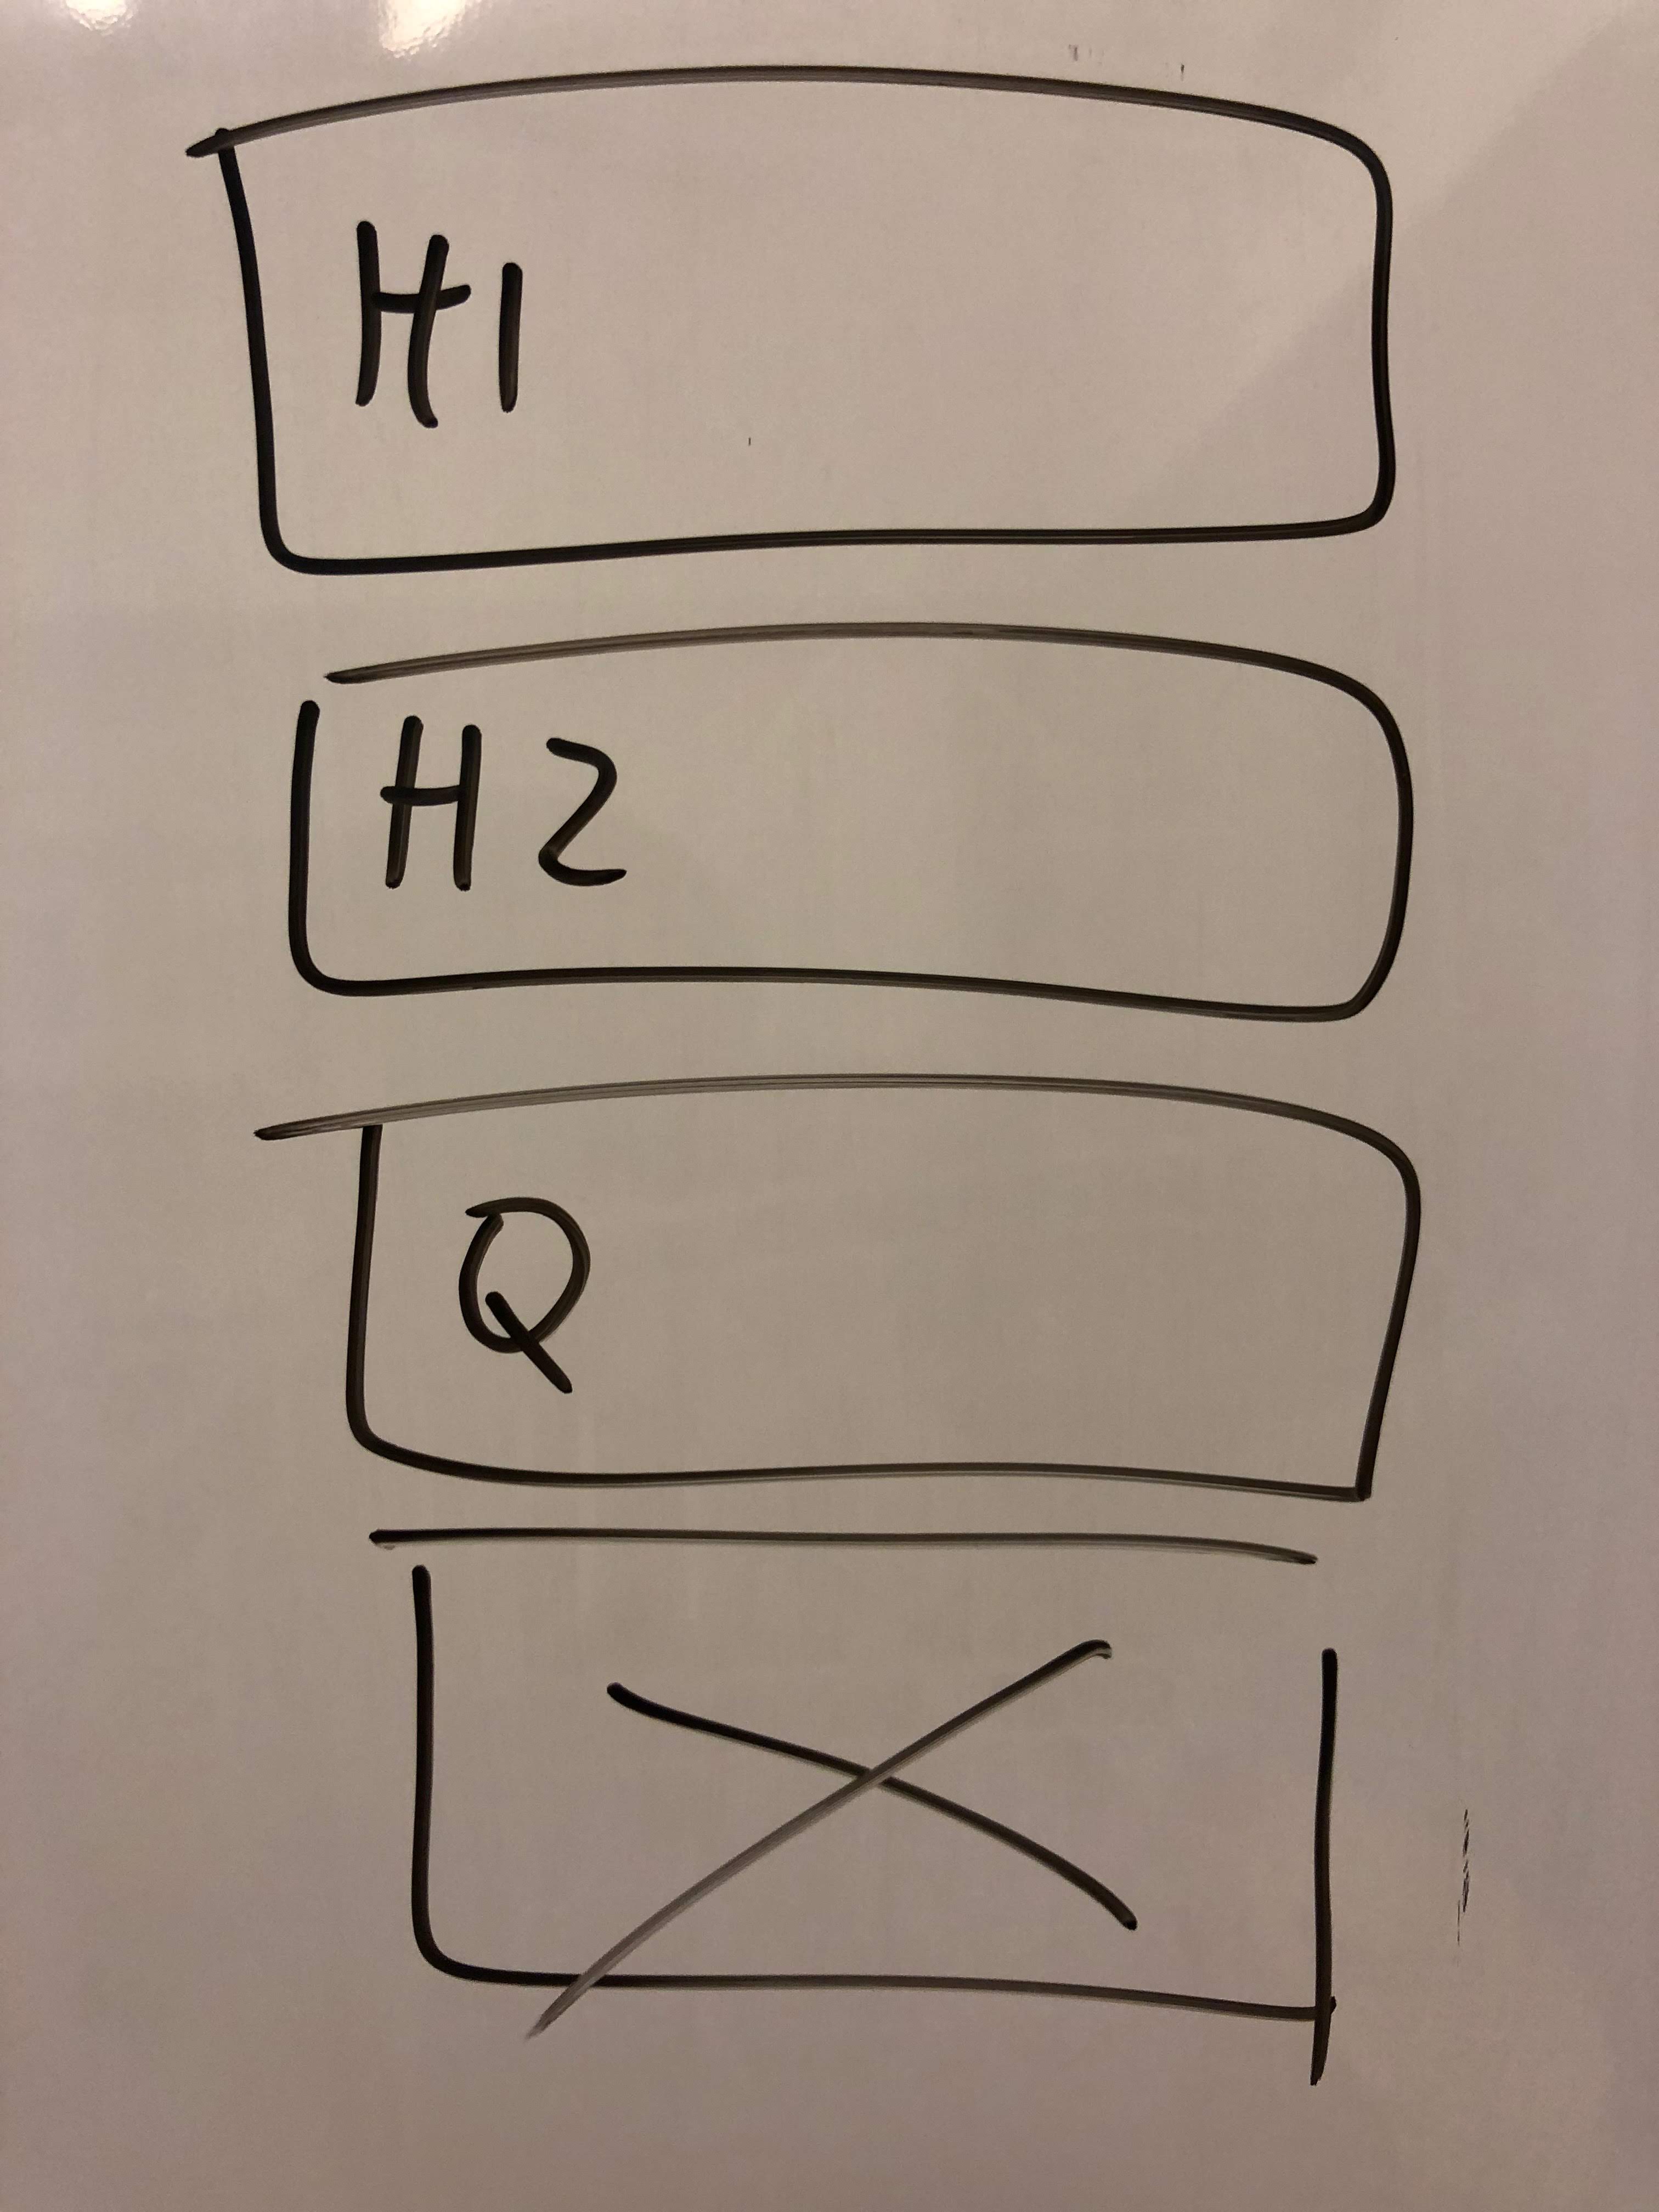 H1
H2
Q